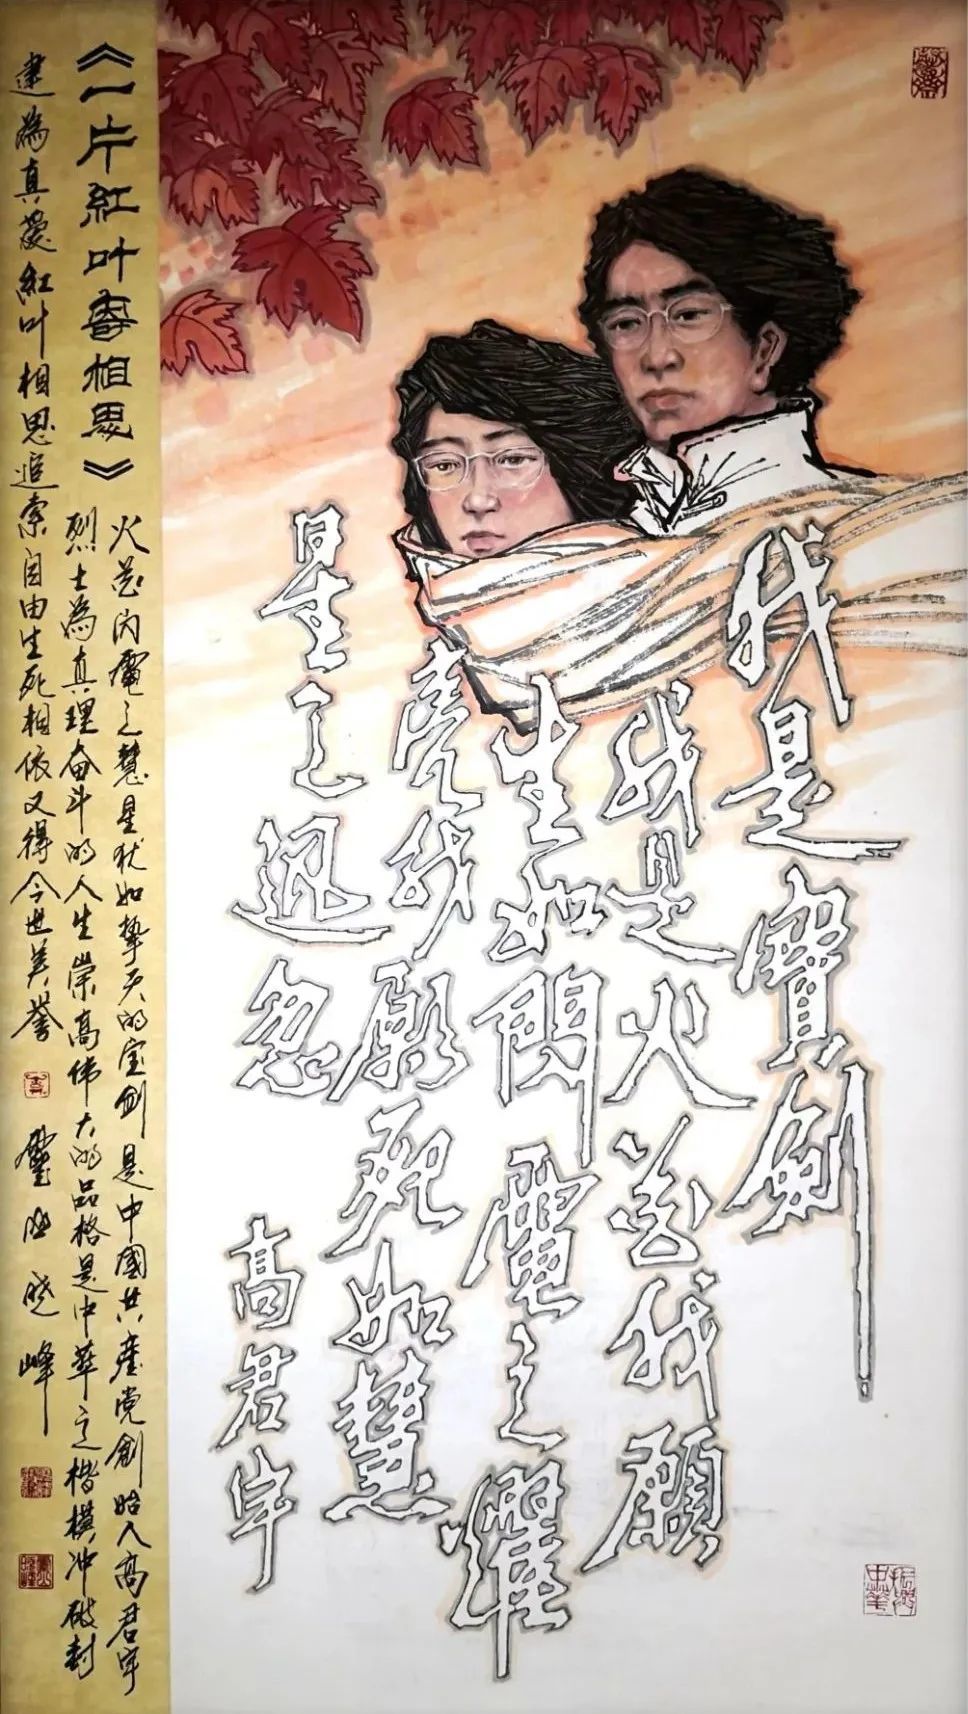 我是寶劍
我是火花我願
生如閃電之耀
亮我願死如慧
星之迅忽
高君宇
《一片紅叶寄相思》
火花闪電之慧星犹如挚天的宝剑是中國共產党創始人高君宇
烈士為真理奋斗的人生崇高伟大的品格是中華之楷模冲破封
建為真愛紅叶相思追索自由生死相依又得今世美誉
晓峰